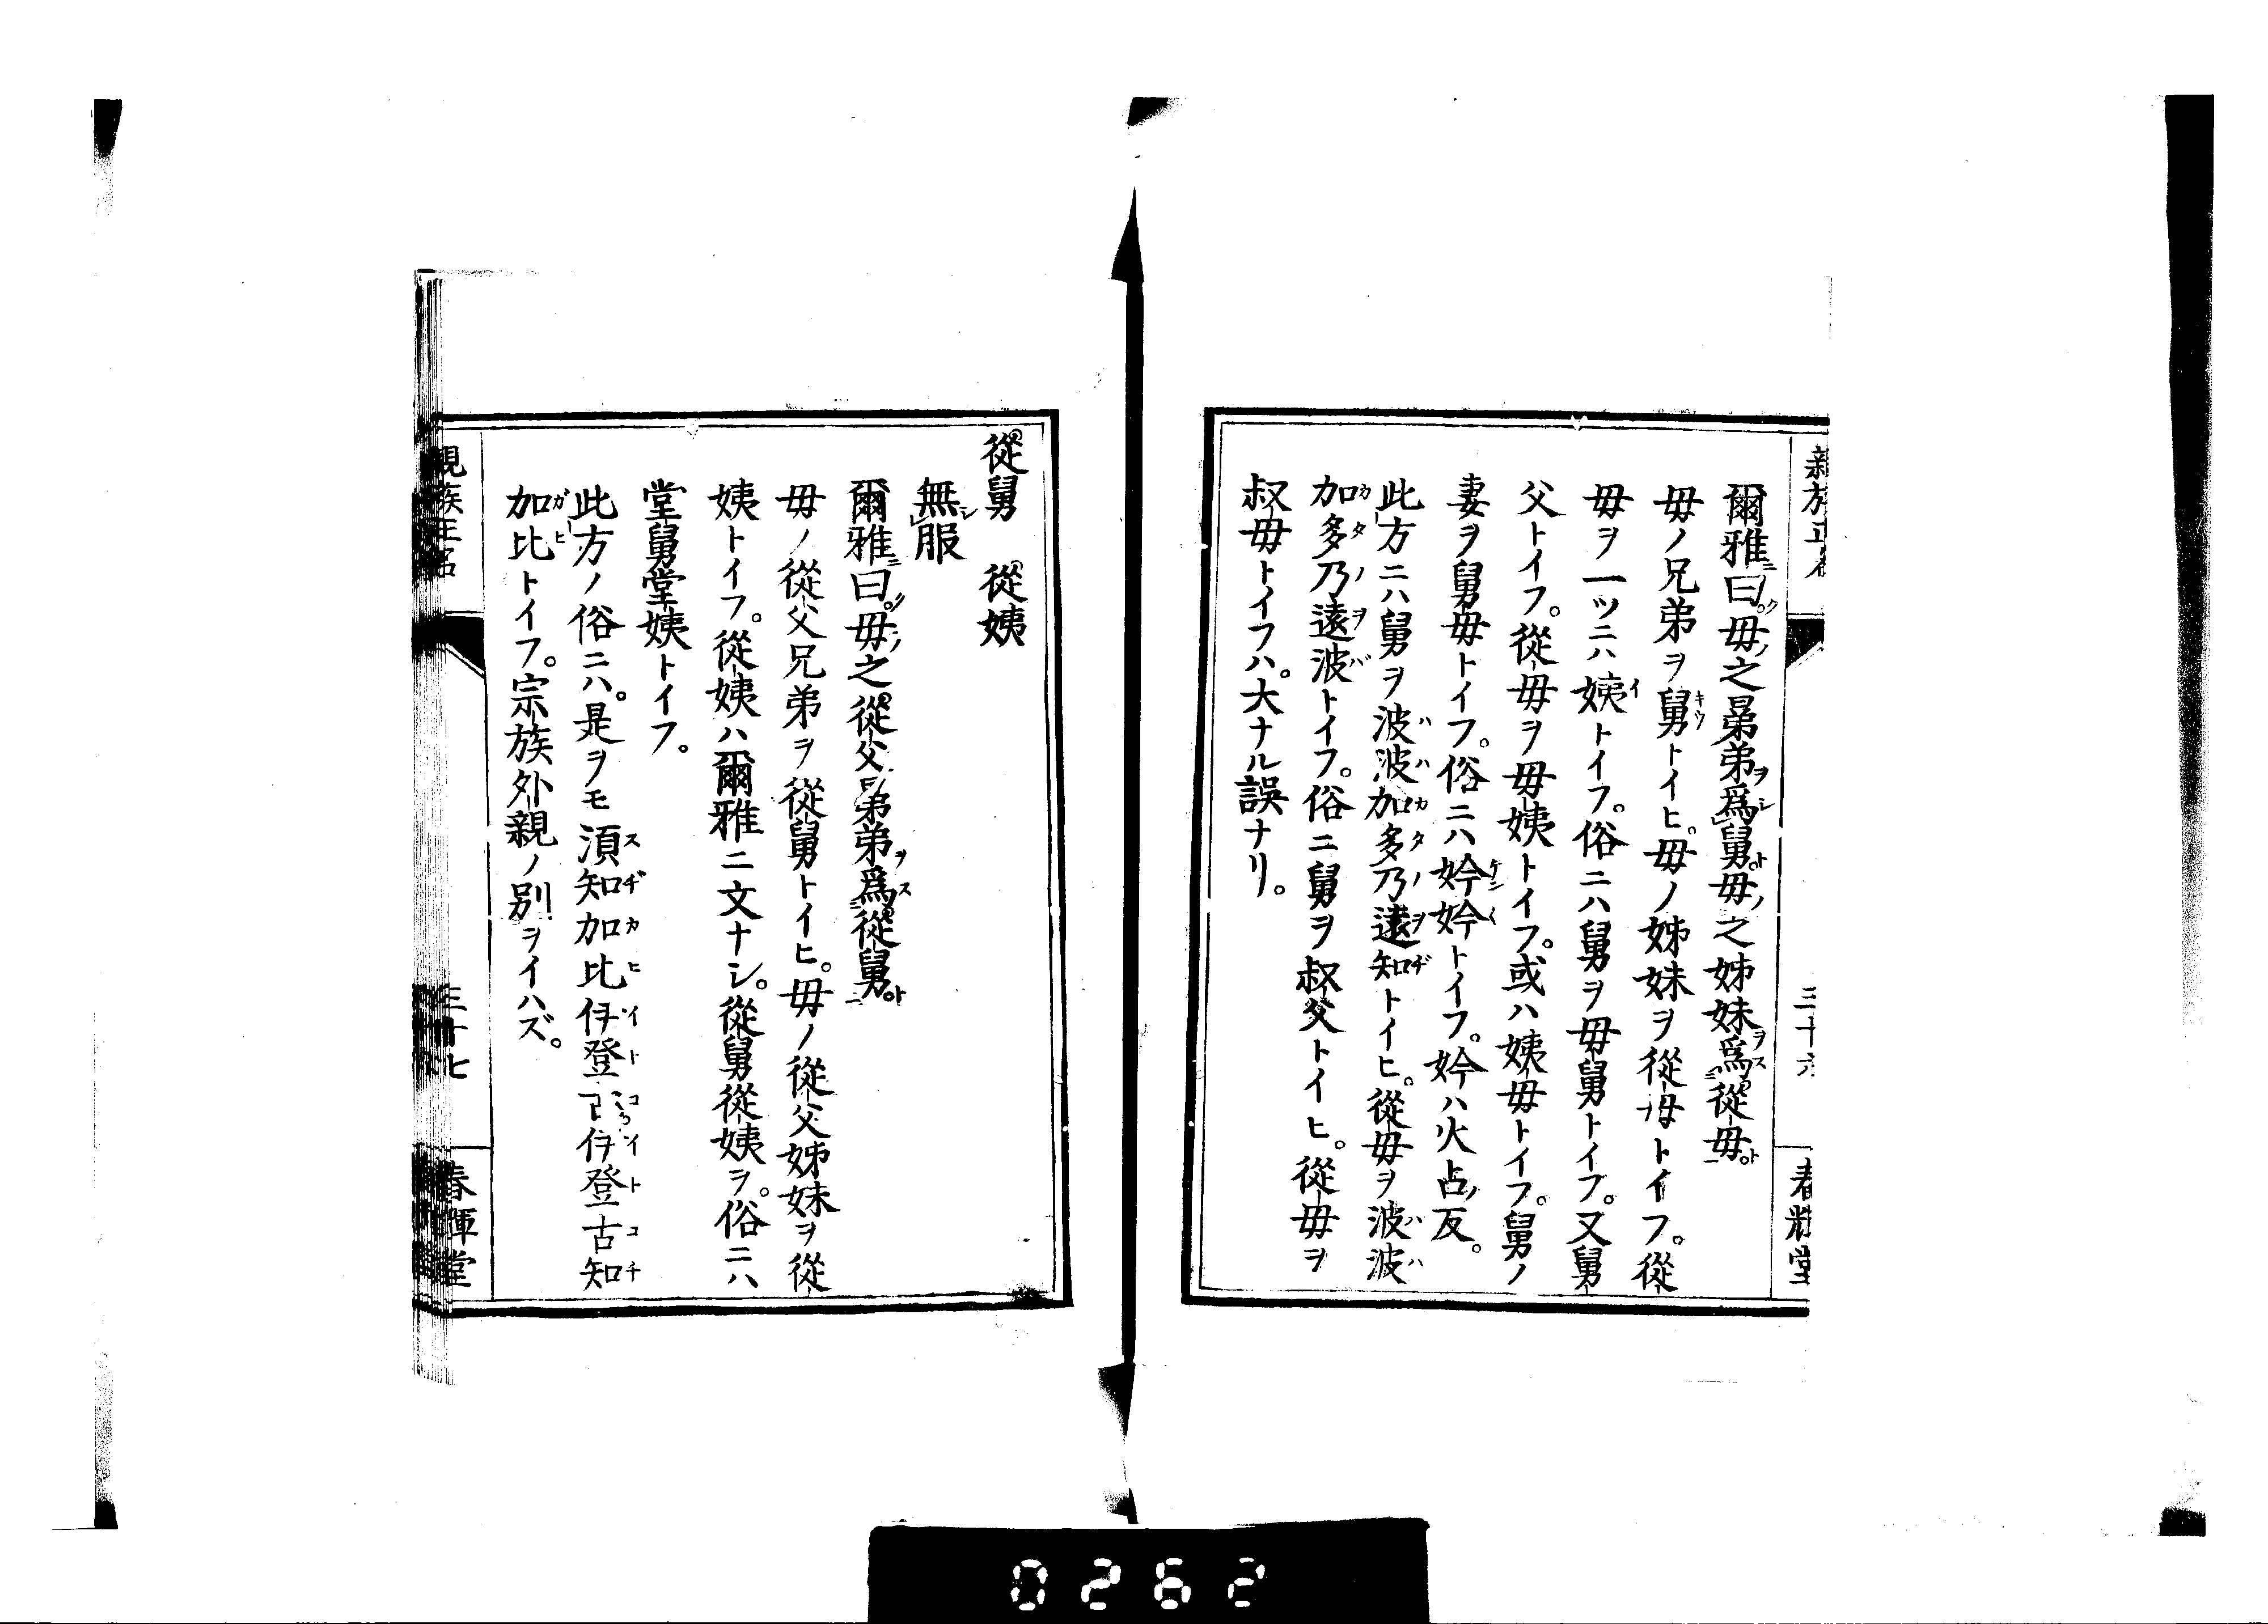 爾雅曰。母之晜弟爲舅。母之姊妹爲從母。
母ノ兄弟ヲ舅トイヒ。母ノ姊妹ヲ從母トイフ。從
母ヲ一ツニハ姨トイフ。俗ニハ舅ヲ母舅トイフ。又舅
父トイフ。從母ヲ母姨トイフ。或ハ姨母トイフ。舅ノ
妻ヲ舅母トイフ。俗ニハ妗妗トイフ。妗ハ火占ノ反。
此方ニハ舅ヲ波波加多乃遠知トイヒ。從母ヲ波波
加多乃遠波トイフ。俗ニ舅ヲ叔父トイヒ。從母ヲ
叔母トイフハ。大ナル誤ナリ。
三十六
春輝堂
從舅 從姨
無服
爾雅曰。母之從父晜弟爲從舅。
母ノ從父兄弟ヲ從舅トイヒ。母ノ從父姊妹ヲ從
姨トイフ。從姨ハ爾雅ニ文ナシ。從舅從姨ヲ。俗ニハ
堂舅堂姨トイフ。
此方ノ俗ニハ。是ヲモ須知加比伊登古伊登古知
加比トイフ。宗族外親ノ別ヲイハズ。
親族正名
三十七
春輝堂
0262